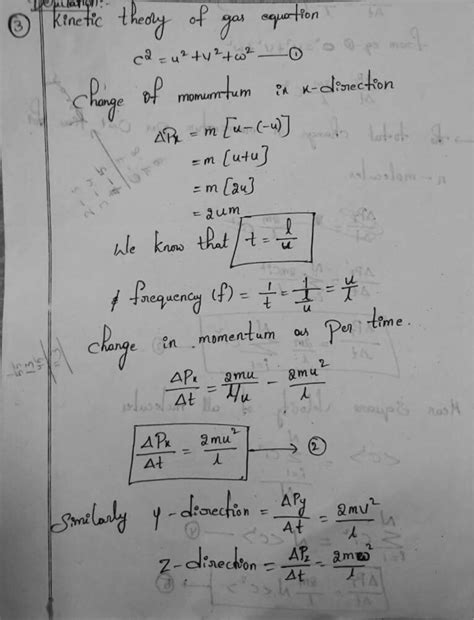 Derivation:-
③ Kinetic theory of gas equation
c² = u² + v² + ω² — ①
Change of momumtum in x-direction
ΔPx = m [u-(-u)]
= m [u+u]
= m [2u]
= 2um
We know that t = l/u
& frequency (f) = 1/t = 1/(l/u) = u/l
Change in momentum as Per time.
ΔPx/Δt = 2mu/(l/u) - 2mu²/l
ΔPx/Δt = 2mu²/l → ②
Similarly y-direction = ΔPy/Δt = 2mv²/l
Z-direction = ΔPz/Δt = 2mω²/l